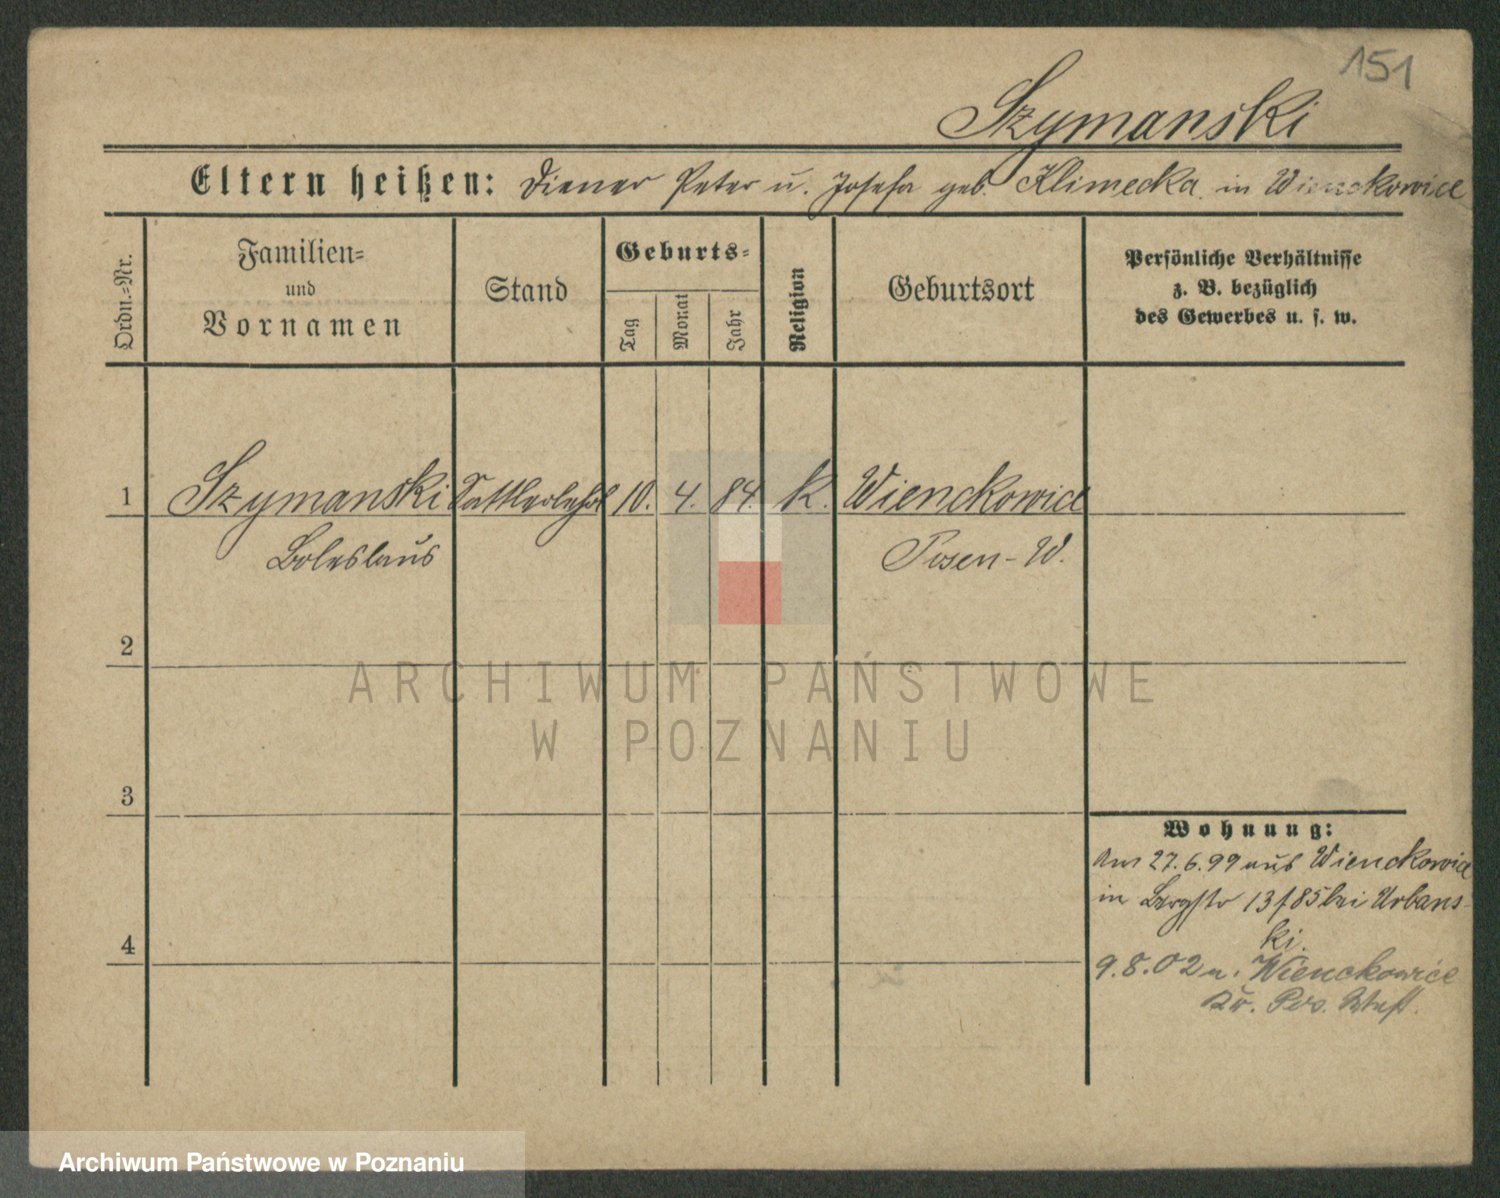 151
Szymanski
Eltern heißen: Diener Peter u. Josefa geb. Klimecka in Wienckowice
Ordn.-Nr.
Familien-
und
Vornamen
Stand
Geburts-
Tag
Monat
Jahr
Religion
Geburtsort
Persönliche Verhältnisse
z. B. bezüglich
des Gewerbes u. s. w.
1 Szymanski Sattlerlehrl 10. 4. 84. k. Wienckowice
Boleslaus Posen-W.
2
3
4
Wohnung:
Am 27.6.99 aus Wienckowice
in Bergstr 13 f 85 bei Urbans-
ki.
9.8.02 n. Wienckowice
Kr. Pos. West.
ARCHIWUM PAŃSTWOWE
W POZNANIU
Archiwum Państwowe w Poznaniu